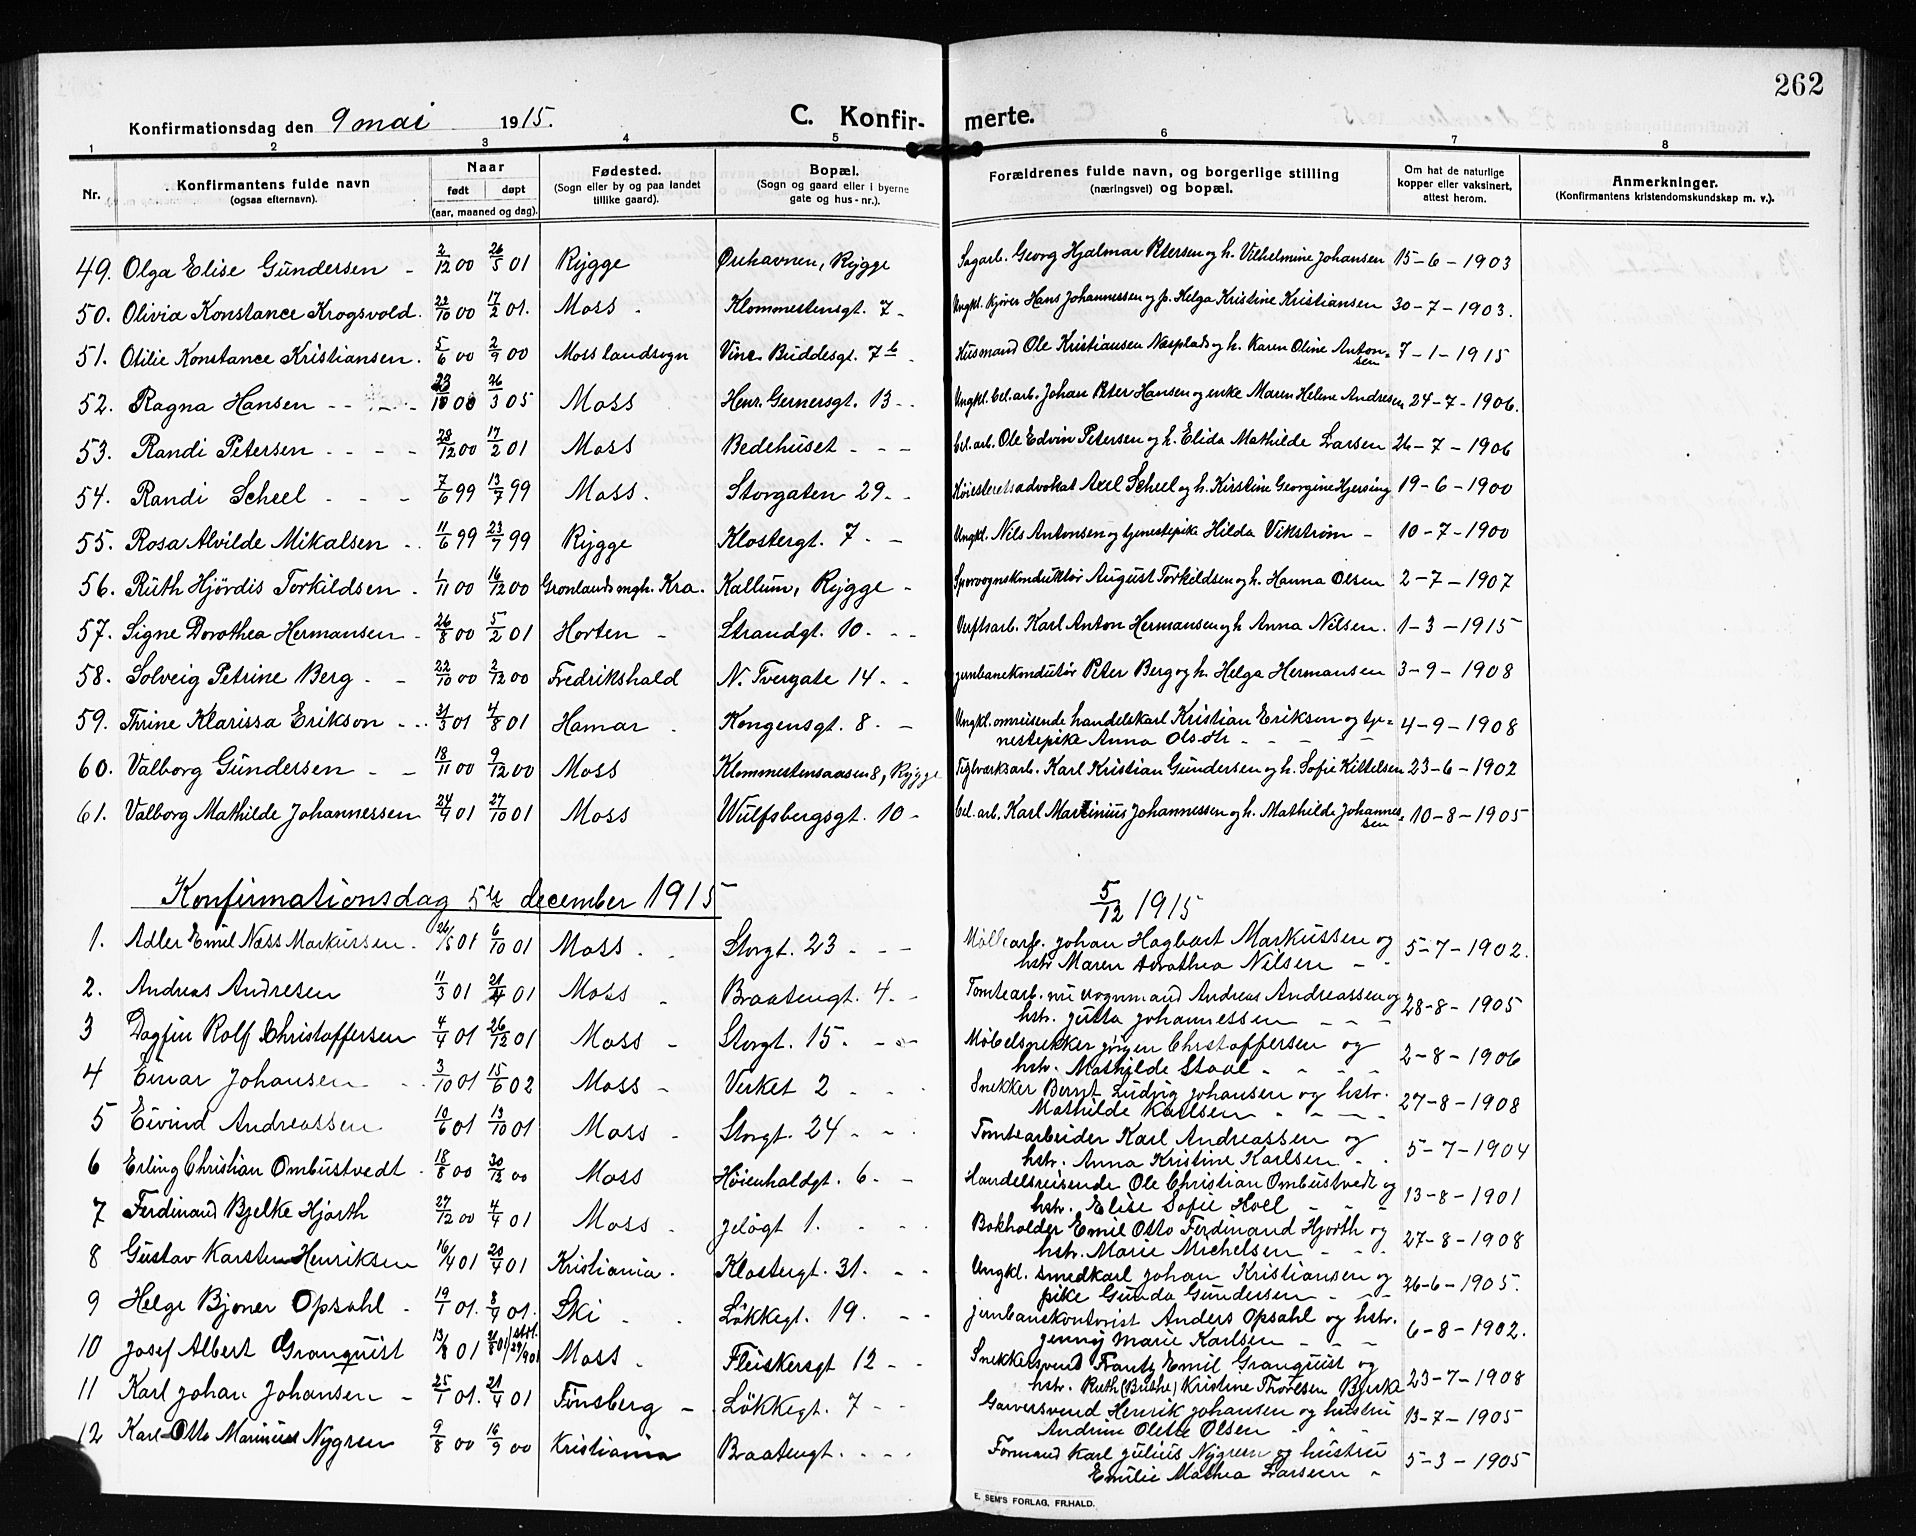 262
Konfirmationsdag den 9 mai 1915. C. Konfir- merte.
1 2 3 4 5 6 7 8
Nr. Konfirmantens fulde navn (ogsaa efternavn). Naar født døpt (aar, maaned og dag). Fødested. (Sogn eller by og paa landet tillike gaard). Bopæl. (Sogn og gaard eller i byerne gate og hus-nr.). Forældrenes fulde navn, og borgerlige stilling (næringsvei) og bopæl. Om hat de naturlige kopper eller vaksinert, attest herom. Anmerkninger. (Konfirmantens kristendomskundskap m. v.).
49. Olga Elise Gundersen - 2/12 00 26/5 01 Rygge Ørehavnen, Rygge Sagarb. Georg Hjalmar Petersen og h. Vilhelmine Johansen 15-6-1903
50. Olivia Konstance Krogsvold. 22/10 00 17/2 01. Moss. Klommestensgt. 7- Ungkl. kjører Hans Johannessen og p. Helga Kristine Kristiansen 30-7-1903.
51. Otilie Konstance Kristiansen. 5/6 00 2/9 00 Moss landsogn Vinc. Buddesgt. 7b - Husmand Ole Kristiansen Næsplads og h. Karen Oline Anton-sen 7-1-1915
52. Ragna Hansen - - - - 00 26/3 05 Moss Henr. Gernersgt. 13-- Ungkl. bel. arb. Johan Peter Hansen og enke Maren Helene Andresen 24-7-1906.
53. Randi Petersen - - - - 28/12 00 17/2 01 Moss Bedehuset - - - bel. arb. Ole Edvin Petersen og h. Elida Mathilde Larsen 26-7-1906
54. Randi Scheel - - - 7/6 99 13/7 99 Moss. Storgaten 29-- Høiesteretsadvokat Axel Scheel og h. Kirstine Georgine Hjersing 19-6-1900
55. Rosa Alvilde Mikalsen - 11/6 99 23/7 99 Rygge Klostergt. 7 - - Ungkl. Nils Antonsen og tjenestepike Hilda Vikstrøm - 10-7-1900
56. Ruth Hjördis Torkildsen - 1/11 00 16/12 00 Grønlands mgh. Kra. Kallum, Rygge - Sporvognskonduktør August Torkildsen og h. Hanna Olsen 2-7-1907
57. Signe Dorothea Hermansen - 26/8 00 5/2 01 Horten - Strandgt. 10. - - Verftsarb. Karl Anton Hermansen og h. Anna Nilsen. 1-3-1915
58. Solveig Petrine Berg - - 22/10 00 2/12 00 Fredrikshald N. Tvergate 14 - - jernbanekonduktör Peter Berg og h. Helga Hermansen 3-9-1908
59. Thrine Klarissa Erikson - - 31/3 01 4/8 01 Hamar . Kongensgt. 8. - Ungkl. omreisende handelskarl Kristian Eriksen og tje-
nestepike Anna Olsdtr - - - - 4-9-1908
60. Valborg Gundersen - - 18/11 00 9/12 00 Moss Klommestensaasen 8, Rygge Teglværksarb. Karl Kristian Gundersen og h. Sofie Kittelsen 23-6-1902
61. Valborg Mathilde Johannessen 24/9 01 27/10 01 Moss Wulfsbergsgt. 10 - bel. arb. Karl Martinius Johannessen og h. Mathilde Johannes-sen 10-8-1905
Konfirmationsdag 5te december 1915 5/12 1915
1. Adler Emil Næss Markussen. 26/5 01 6/10 01 Moss. Storgt. 23 - - - Møllearb. Johan Hagbart Markussen og
hstr Maren Dorothea Nilsen - - 5-7-1902.
2. Andreas Andresen 11/3 01 21/4 01 Moss - Braatengt. 4. - Tomtearb. nu vognmand Andreas Andreassen og
hstr. Jutta Johannessen - - - 28-8-1905
3 Dagfin Rolf Christoffersen 4/4 01 26/12 01 Moss - Storgt. 15. - - - Møbelsnekker Jörgen Christoffersen og
hstr. Mathilde Staal - - - - 2-8-1906
4 Einar Johansen 3/10 01 15/6 02 Moss - Verket 2 - - Snekker Bernt Ludvig Johansen og hstr.
Mathilde Karlsen - - - - 27-8-1908
5 Eivind Andreassen 10/6 01 13/10 01 Moss - Storgt. 24 - - Tomtearbeider Karl Andreassen og
hstr. Anna Kristine Karlsen - - 5-7-1904
6 Erling Christian Ombustvedt . 18/8 00 30/12 00 Moss Høienhaldgt. 6. - - Handelsreisende Ole Christian Ombustvedt og
hstr. Elise Sofie Hoel - - - 13-8-1901
7 Ferdinand Bjelke Hjorth 27/12 00 4/4 01 Moss - Jeløgt 1. - - - Bokholder Emil Otto Ferdinand Hjorth og
hstr. Marie Michelsen - - - 27-8-1908
8 Gustav Karsten Henriksen 16/4 01 20/4 01 Kristiania. Klostergt. 31. - - Ungkl. smedkarl Johan Kristiansen og
pike Gunda Gundersen - - - 26-6-1905.
9 Helge Bjoner Opsahl - 19/1 01. 8/4 01. Ski - - Løkkegt. 19. - - jernbanekontorist Anders Opsahl og hstr.
Jenny Marie Karlsen - - - 6-8-1902.
10 Josef Albert Granquist 13/8 01 Moss - Fleiskersgt 12 - - Snekkersvend Frantz Emil Granquist og
hstr. Ruth (Buthe) Kristine Thoresen Bjerke 23-7-1908
11 Karl Johan Johansen - 25/1 01. 21/4 01 Tønsberg - Løkkegt. 7 - - Garversvend Henrik Johansen og hustru
Andrine Olette Olsen - - - 13-7-1905
12 Karl Otto Marinius Nygren 9/8 00 16/9 00 Kristiania Braatengt. - - - Formand Karl Julius Nygreen og hustru
Emilie Mathea Larsen - 5-3-1905
E. SEM'S FORLAG, FR.HALD.